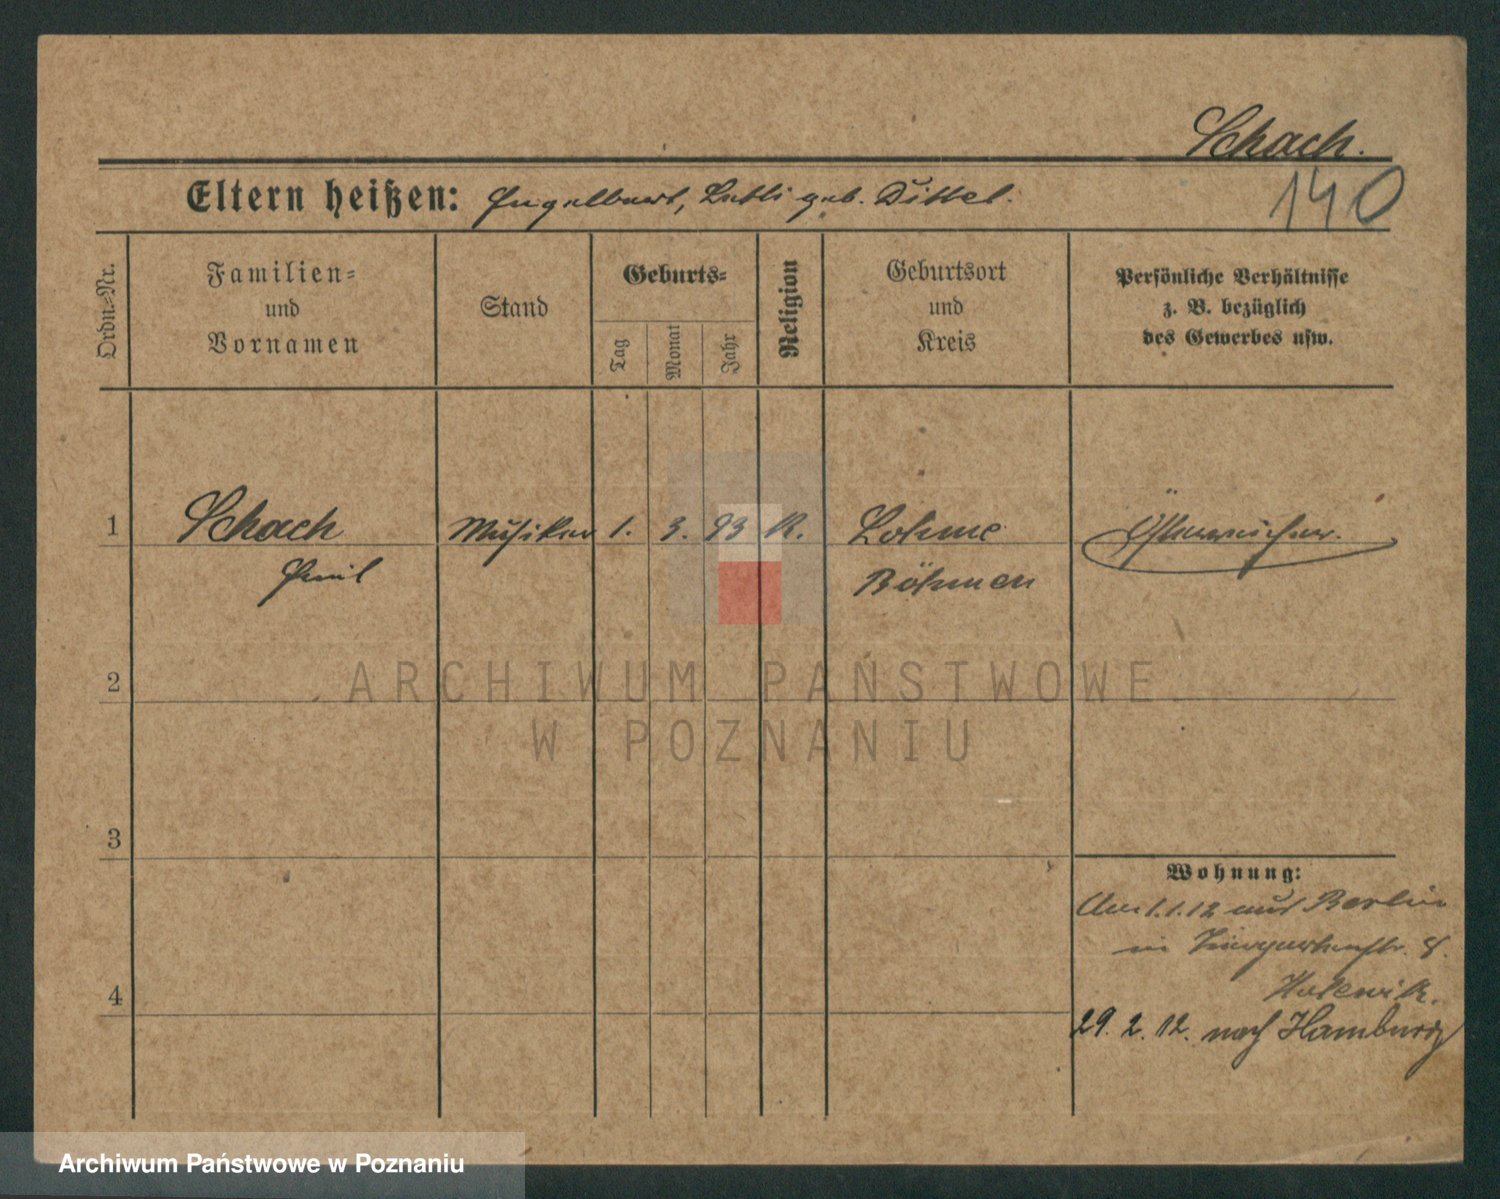 Schach.
Eltern heißen: Engelbert, geb. Dittel.
140
Ordn.-Nr.
Familien-
und
Vornamen
Stand
Geburts-
Tag
Monat
Jahr
Religion
Geburtsort
und
Kreis
Persönliche Verhältnisse
z. B. bezüglich
des Gewerbes usw.
1 Schach Musiker 1. 3. 93 K. Lohme Österreicher.
Emil Böhmen
2
3
4
Wohnung:
Am 1.1.12 aus Berlin
in 8.
29. 2. 12. nach Hamburg
ARCHIWUM PAŃSTWOWE
W POZNANIU
Archiwum Państwowe w Poznaniu